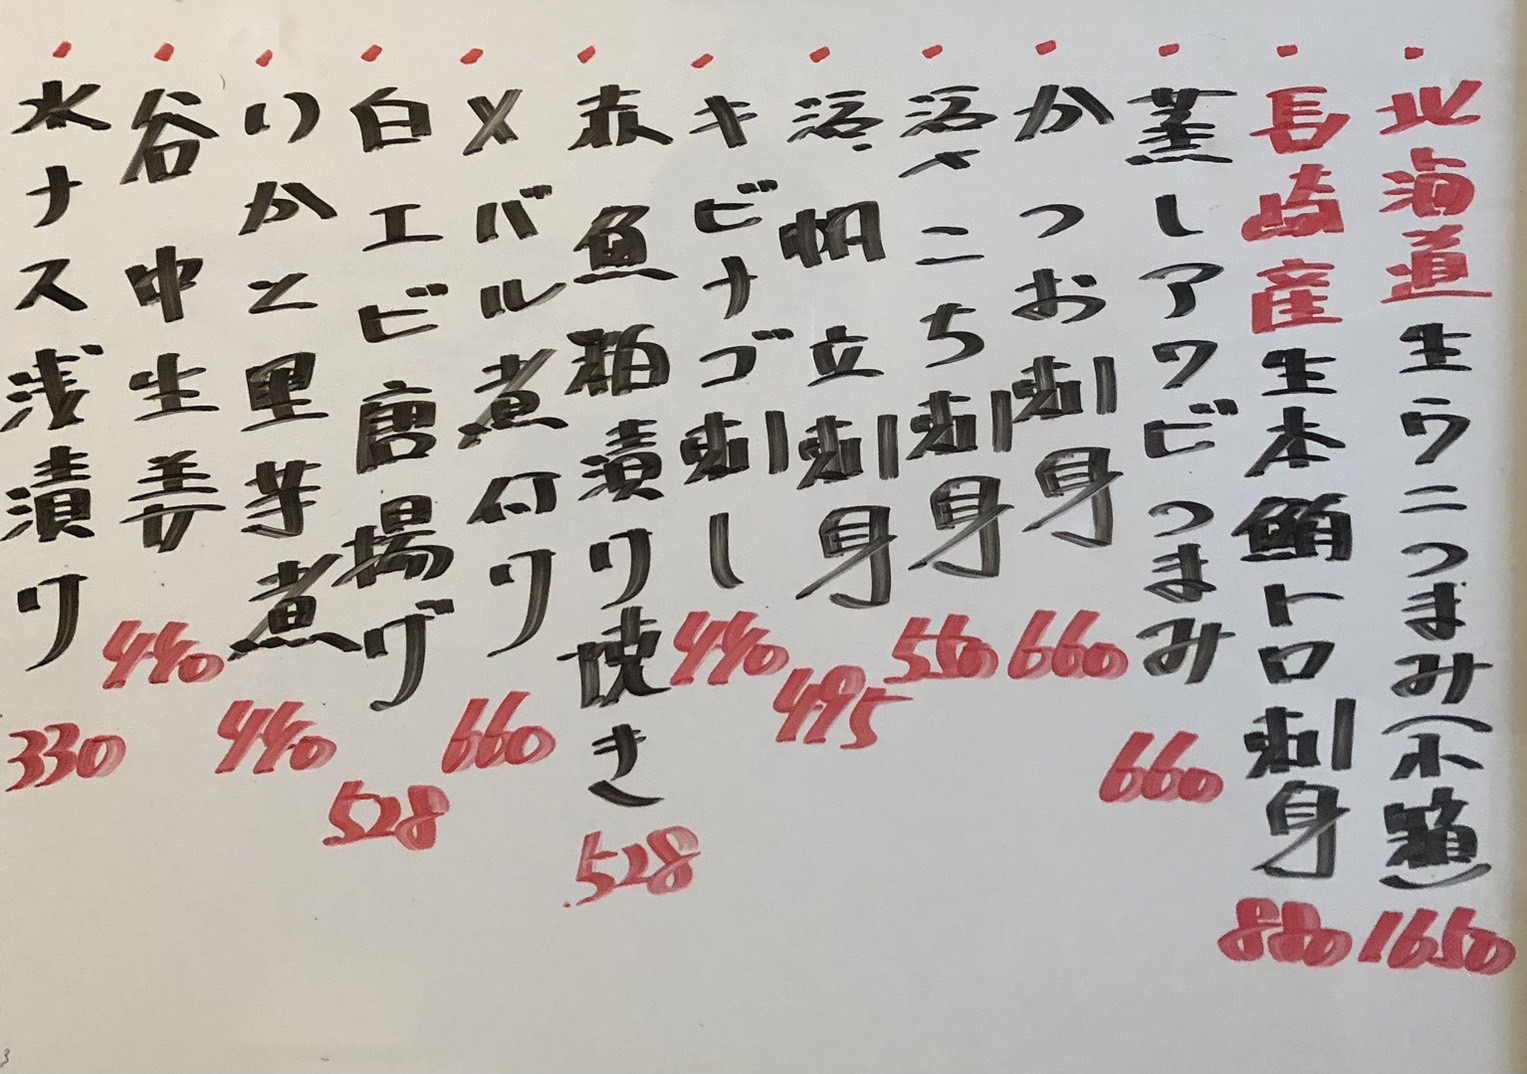 北海道生ウニつまみ(小箱) 1650
長崎産生本鮪トロ刺身 880
蒸しアワビつまみ 660
かつお刺身 660
活〆こち刺身 550
活帆立刺身 495
キビナゴ刺し 440
赤魚粕漬け焼き 528
メバル煮付け 660
白エビ唐揚げ 528
いかと里芋煮 440
谷中生姜 440
水ナス浅漬け 330